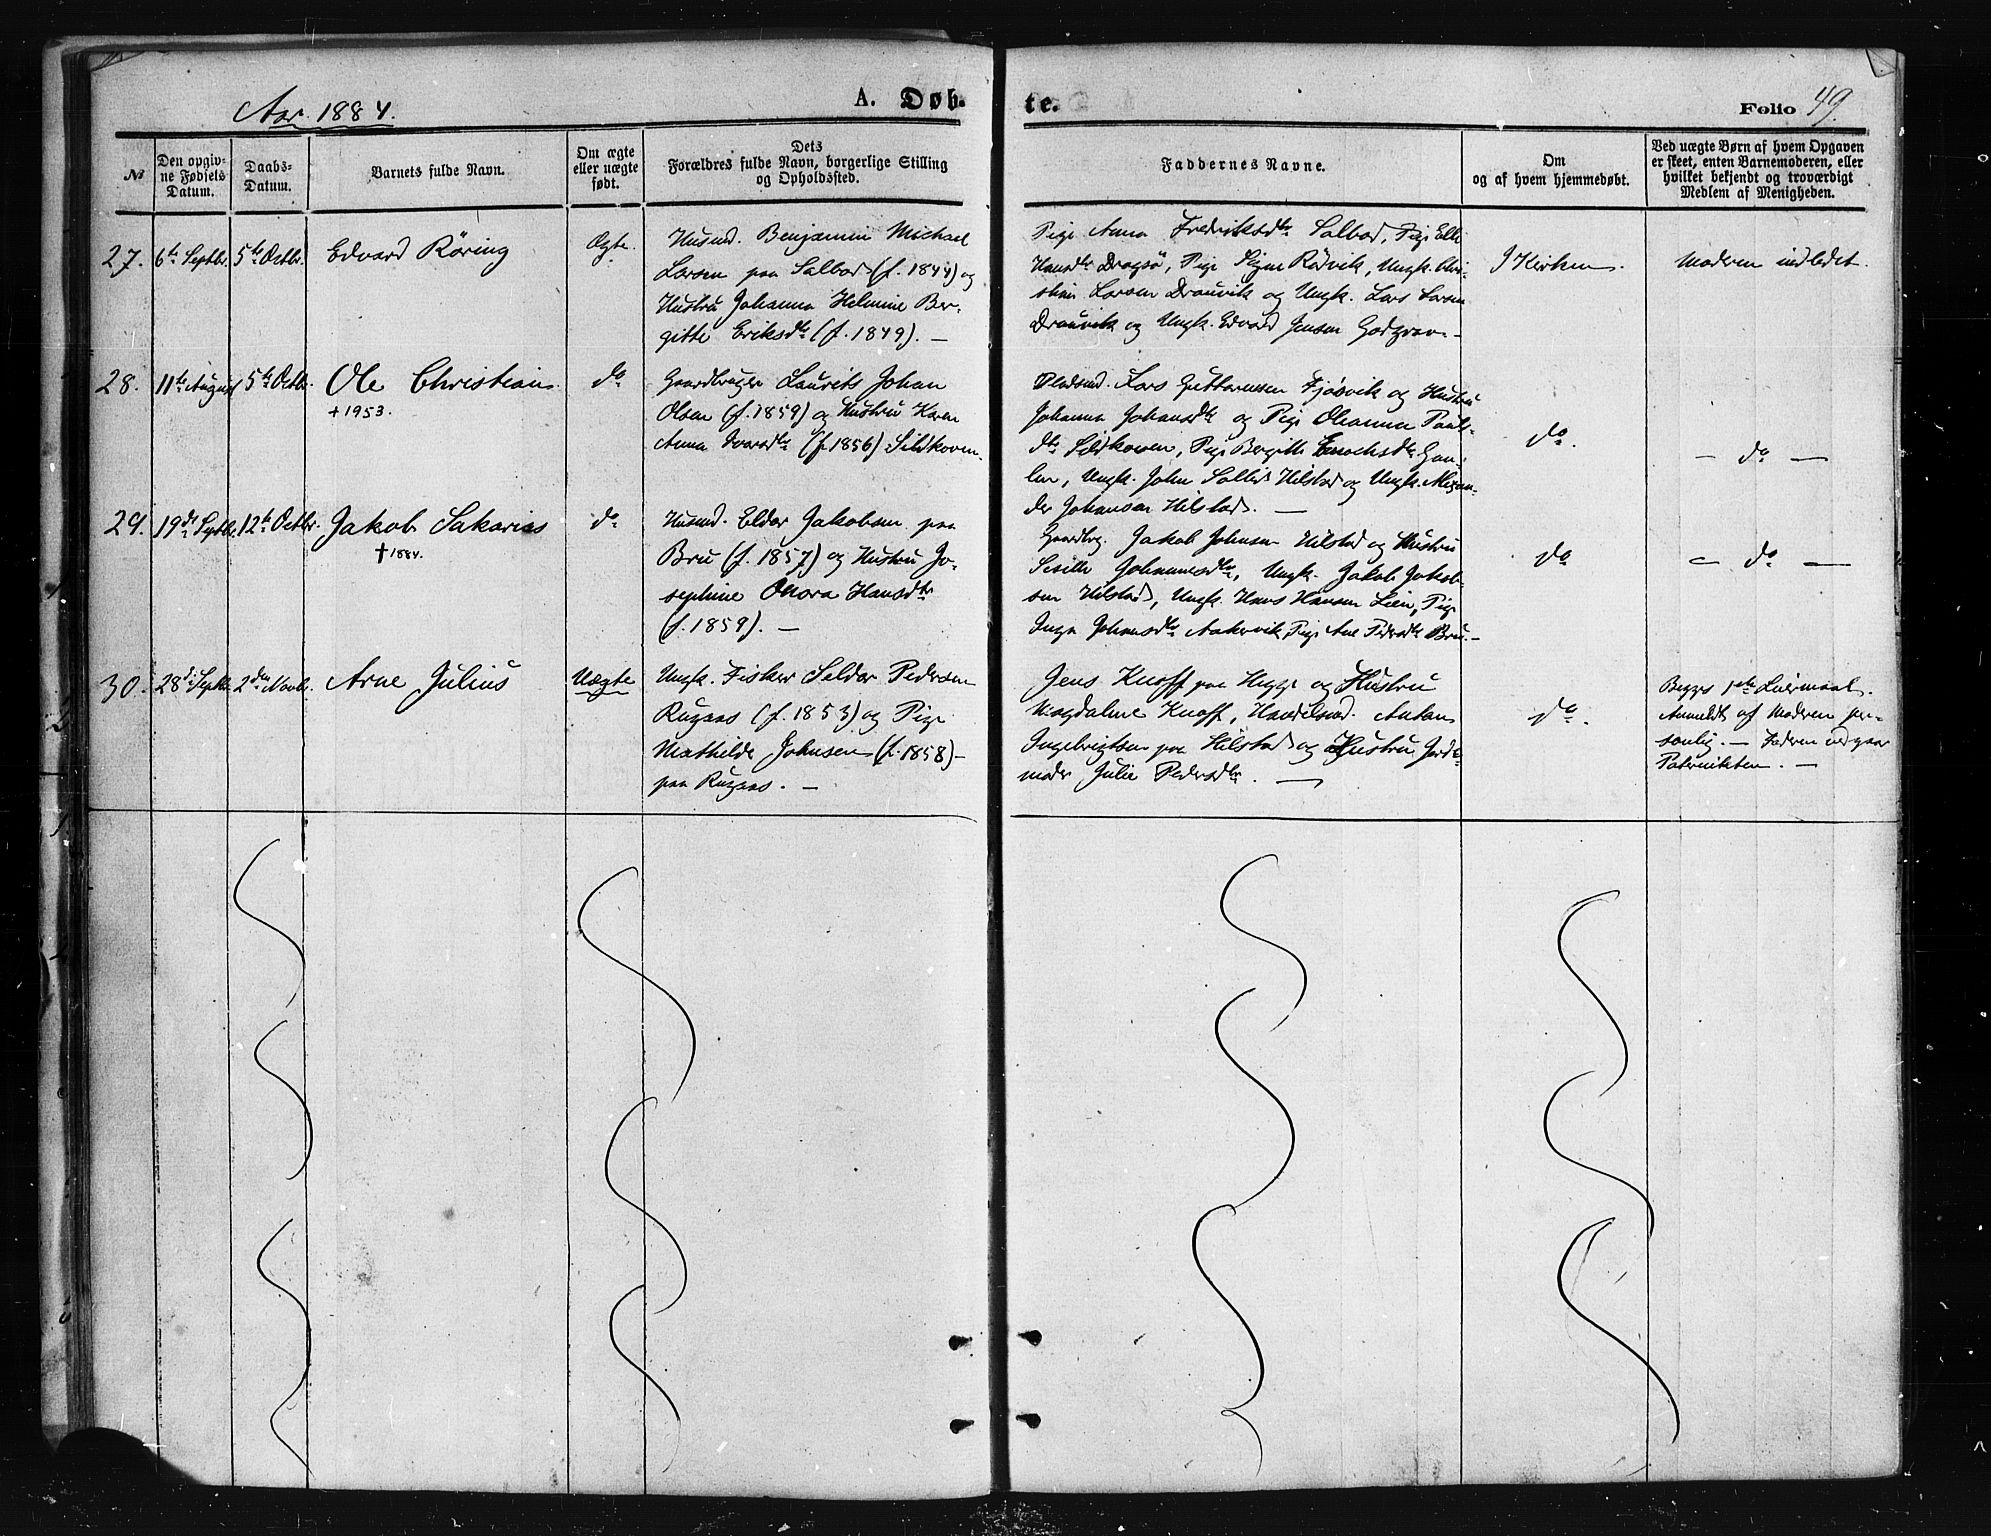 Aar. 1884.
A. Døb-
te.
Folio 49.
№
Den opgiv-
ne Fødsels
Datum.
Daabs-
Datum.
Barnets fulde Navn.
Om ægte
eller uægte
født.
Dets
Forældres fulde Navn, borgerlige Stilling
og Opholdssted.
Faddernes Navne.
Om
og af hvem hjemmedøbt.
Ved uægte Børn af hvem Opgaven
er skeet, enten Barnemoderen, eller
hvilket bekjendt og troværdigt
Medlem af Menigheden.
27. 6te Septbr. 5te Octbr. Edvard Röring Ægte.
Husmd. Benjamin Michael
Larsen paa Salbod (f. 1844) og
Hustru Johanna Helmine Ber-
gitte Eriksdtr (f. 1849). —
Pige Anna Fredriksdtr Salbod, Pige Elli
Hansdtr Dragsö, Pige Signe Rödvik, Ungk. Chri-
stian Larsen Drauvik og Ungk. Lars Larsen
Drauvik og Ungk. Edvard Jensen
I Kirken.
Moderen indledet.
28. 11te August 5te Octbr. Ole Christian do
+ 1953.
Gaardbruger Laurits Johan
Olsen (f. 1859) og Hustru Karen
Anna Ivarsdtr (f. 1856) Sildkoven.
Lars Guttormsen Fjøsvik og Hustru
Johanna Johansdtr og Pige Oleanna Pauls-
dtr Sildkoven, Pige Bergitte Enochsdtr
Ungk. John Hilstad og Ungk. Alexan-
der Johansen Hilstad. —
do.
— do —
29. 19de Septbr. 12te Octbr. Jakob Sakarias do
+ 1884.
Husmd. Eldar Jakobsen paa
Bru (f. 1857) og Hustru Jo-
sephine Hansdtr
(f. 1859). —
Gaardbrg. Jakob Johnsen Hilstad og Hustru
Johannesdtr, Ungk. Jakob Jakob-
sen Hilstad, Ungk. Hans Hansen Lien, Pige
Inga Johansdtr Aakervik, Pige Ane Pedersdtr Bru. —
do
— do —
30. 28de Septbr. 2den Novbr. Arne Julius Uægte
Ungk. Fisker Seldar Pedersen
Rugaas (f. 1853) og Pige
Mathilde Johnsen (f. 1858) —
paa Rugaas. —
Jens Knoff paa og Hustru
Magdalene Knoff, Handelsmd. Anton
Ingebrigtsen paa Hilstad og Hustru, Jorde-
moder Julie Pedersdtr. —
do.
Begges 1ste Leiermaal.
Anmeldt af Moderen per-
sonlig. — Faderen vedgaar
Paterniteten. —